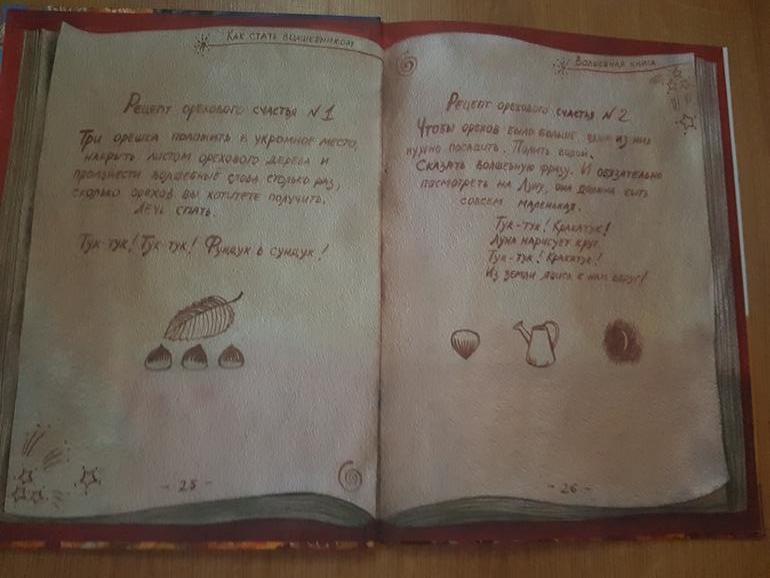 Как стать волшебником
Рецепт орехового счастья №1
Три орешка положить в укромное место,
накрыть листом орехового дерева и
произнести волшебные слова столько раз,
сколько орехов вы хотитете получить.
Лечь спать.
Тук-тук! Тук-тук! Фундук в сундук!
- 25 -
Волшебная книга
Рецепт орехового счастья №2
Чтобы орехов было больше, один из них
нужно посадить. Полить водой.
Сказать волшебную фразу. И обязательно
посмотреть на Луну, она должна быть
совсем маленькая.
Тук-тук! Кракатук!
Луна нарисует круг.
Тук-тук! Кракатук!
Из земли к нам вдруг!
- 26 -